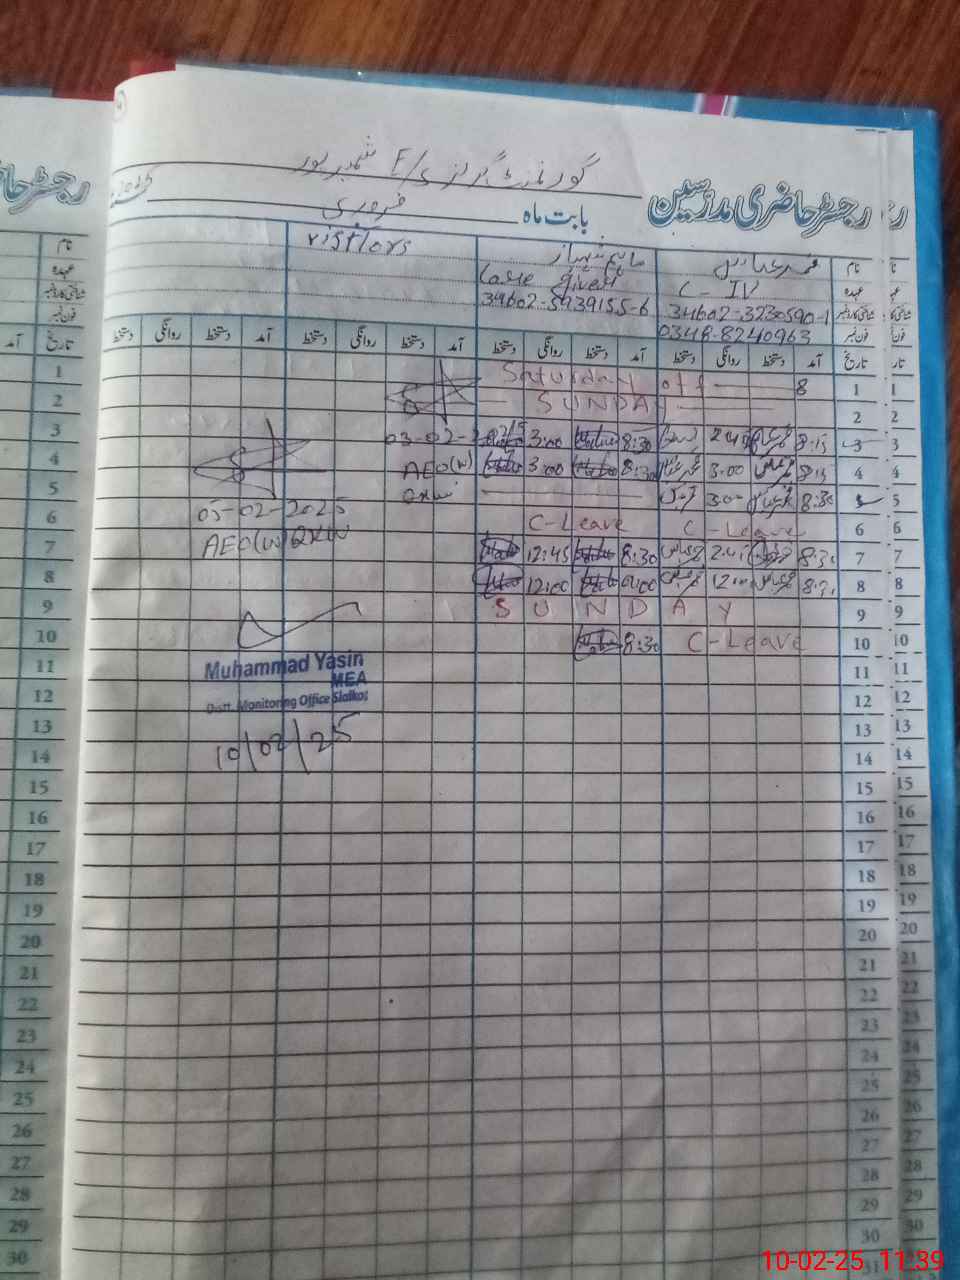 گورنمنٹ گرلز E/S شمبرپور
رجسٹر حاضری مدرسین
بابت ماہ فروری 2025
نام محمد عباس visitors
عہدہ C-IV Care given
شناختی کارڈ نمبر 34602-3230590-1 34602-5939155-6
فون نمبر 0348-8240963
تاریخ آمد دستخط روانگی دستخط آمد دستخط روانگی دستخط آمد دستخط روانگی دستخط آمد دستخط روانگی دستخط
1 8 Saturday off
2 SUNDAY
3 8:15 2:45 8:30 3:00 03-02-2025
4 8:15 3:00 8:30 3:00 AEO(W)
5 8:30 3:00
6 C-Leave C-Leave 05-02-2025
7 8:30 8:30 12:45 AEO(W)
8 8:30 12:00 9:00 12:00
9 SUNDAY
10 C-Leave 8:30
11 Muhammad Yasin
MEA
12 Distt. Monitoring Office Sialkot
13 10/02/25
14
15
16
17
18
19
20
21
22
23
24
25
26
27
28
29
30
31
10-02-25 11:39